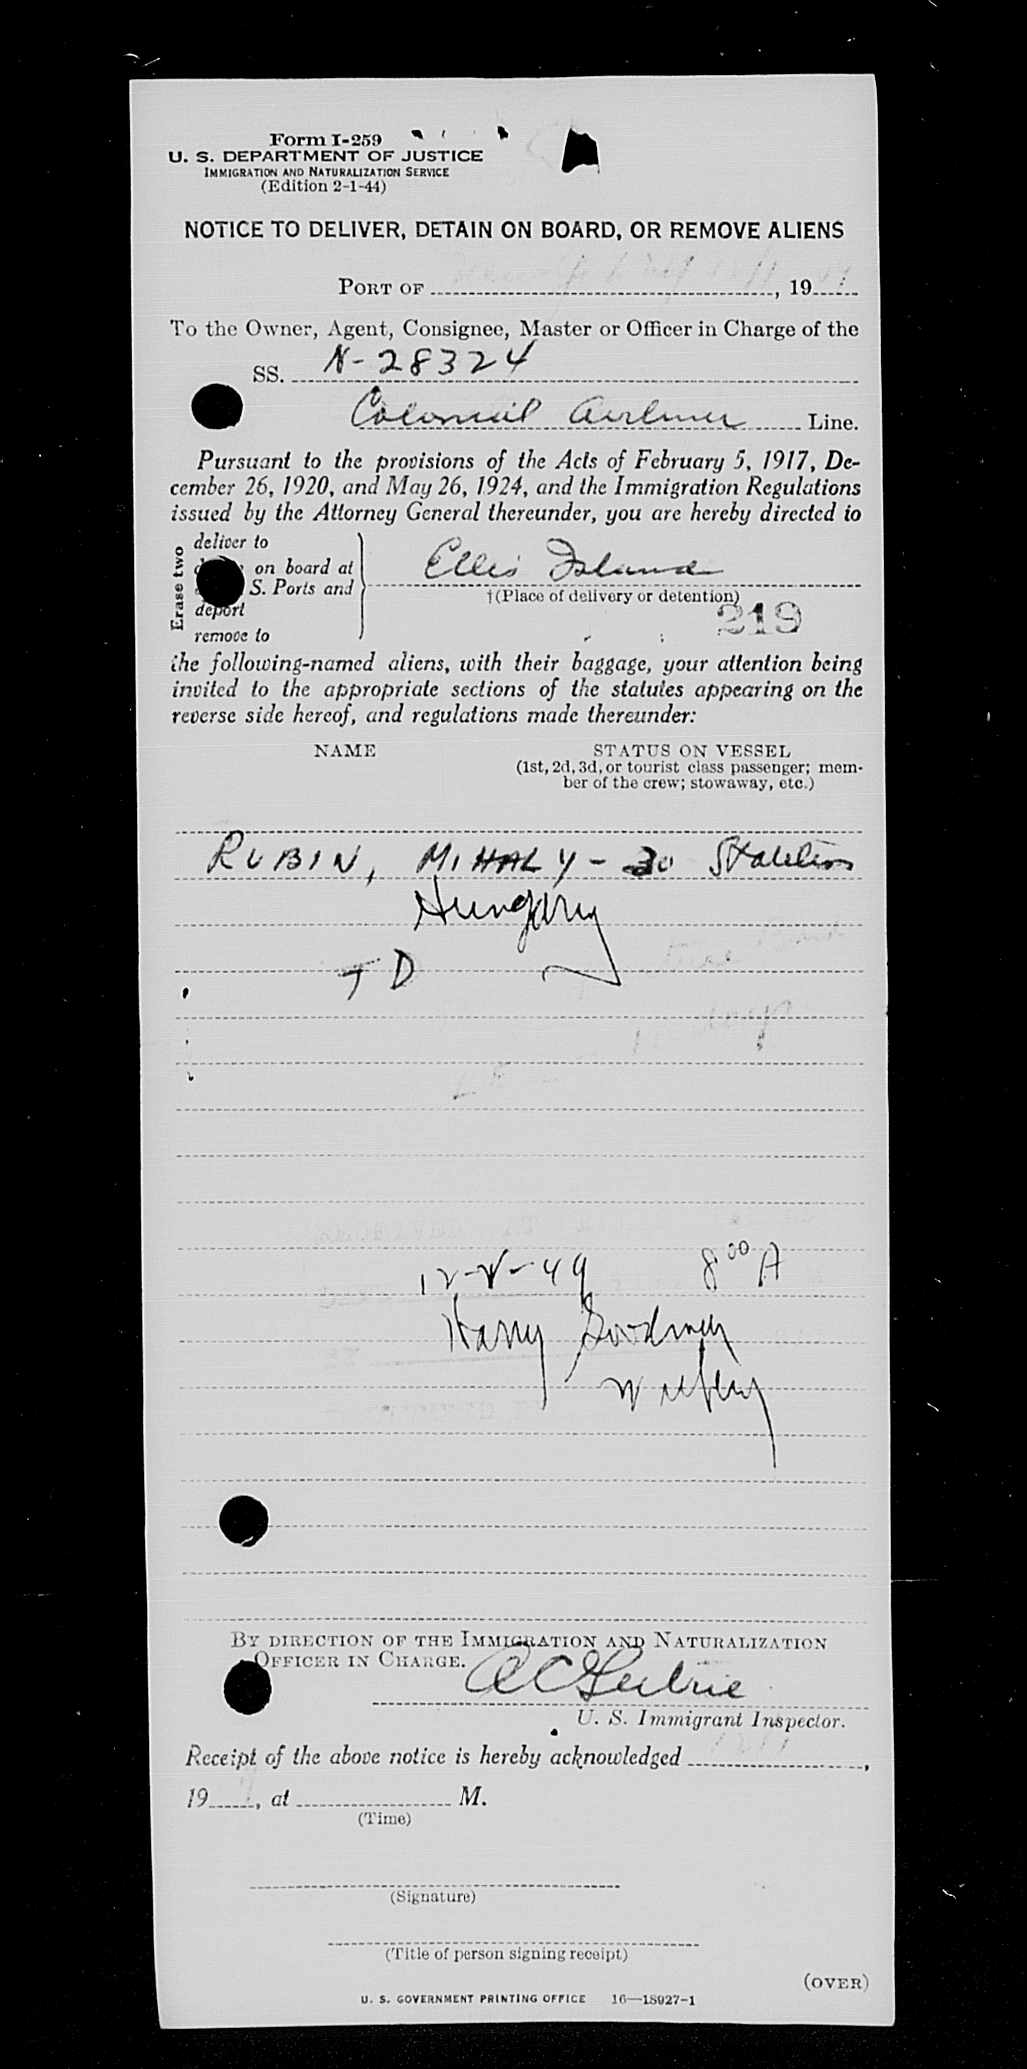 Form I-259
U. S. DEPARTMENT OF JUSTICE
IMMIGRATION AND NATURALIZATION SERVICE
(Edition 2-1-44)
NOTICE TO DELIVER, DETAIN ON BOARD, OR REMOVE ALIENS
PORT OF , 19
To the Owner, Agent, Consignee, Master or Officer in Charge of the
SS. N-28324
Colonial Airlines Line.
Pursuant to the provisions of the Acts of February 5, 1917, De-
cember 26, 1920, and May 26, 1924, and the Immigration Regulations
issued by the Attorney General thereunder, you are hereby directed to
Erase two
deliver to
on board at
S. Ports and
deport
remove to
Ellis Island
†(Place of delivery or detention)
219
the following-named aliens, with their baggage, your attention being
invited to the appropriate sections of the statutes appearing on the
reverse side hereof, and regulations made thereunder:
NAME STATUS ON VESSEL
(1st, 2d, 3d, or tourist class passenger; mem-
ber of the crew; stowaway, etc.)
RUBIN, MIHALY - 30 Stateless
Hungary
TD
12-8-49 8 00 A
Harry
BY DIRECTION OF THE IMMIGRATION AND NATURALIZATION
OFFICER IN CHARGE.
U. S. Immigrant Inspector.
Receipt of the above notice is hereby acknowledged ,
19 , at M.
(Time)
(Signature)
(Title of person signing receipt)
(OVER)
U. S. GOVERNMENT PRINTING OFFICE 16—18927-1